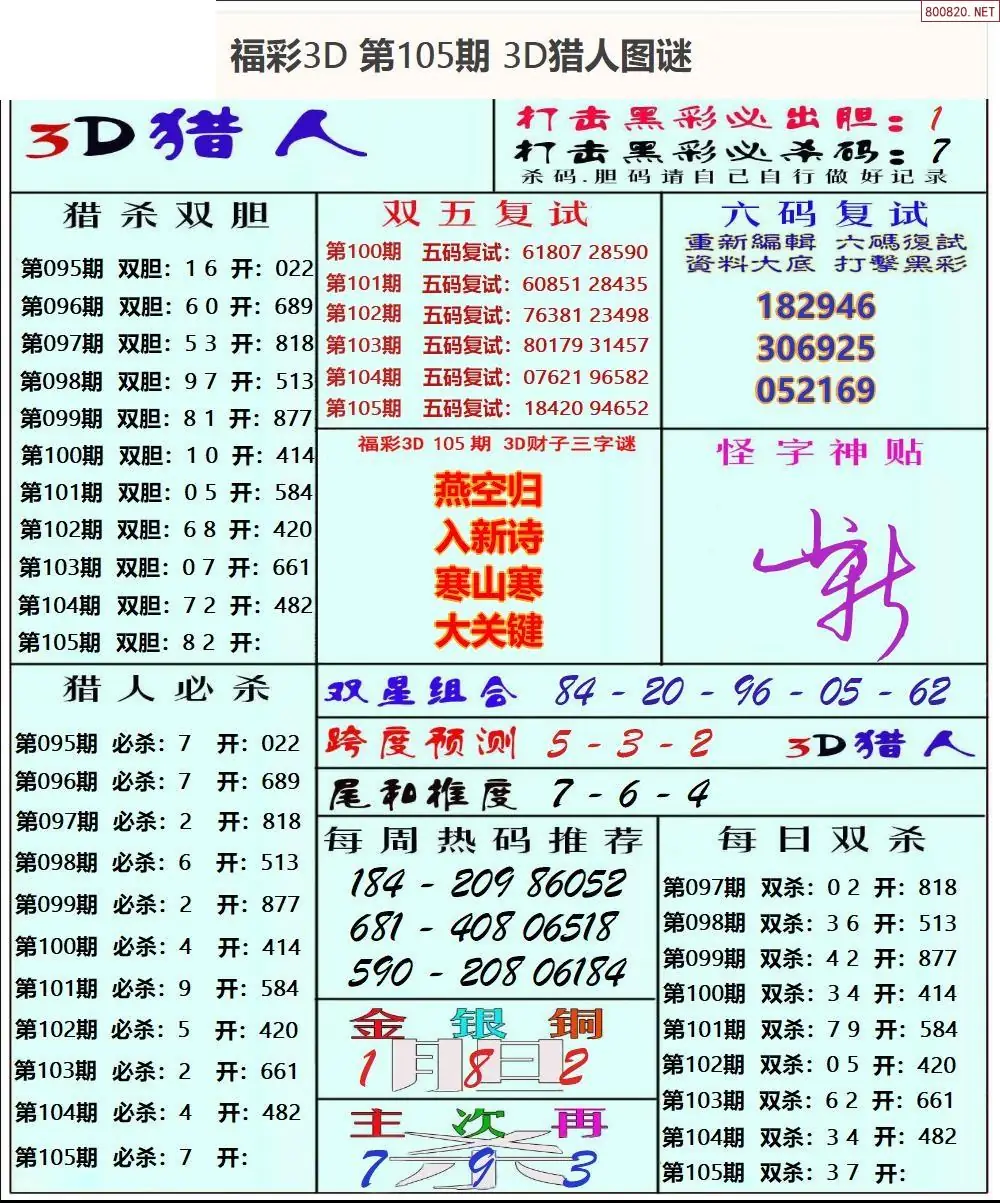 800820.NET
福彩3D 第105期 3D猎人图谜
3D猎人
打击黑彩必出胆：1
打击黑彩必杀码：7
杀码.胆码请自己自行做好记录
猎杀双胆
第095期 双胆：1 6 开：022
第096期 双胆：6 0 开：689
第097期 双胆：5 3 开：818
第098期 双胆：9 7 开：513
第099期 双胆：8 1 开：877
第100期 双胆：1 0 开：414
第101期 双胆：0 5 开：584
第102期 双胆：6 8 开：420
第103期 双胆：0 7 开：661
第104期 双胆：7 2 开：482
第105期 双胆：8 2 开：
双五复试
第100期 五码复试：61807 28590
第101期 五码复试：60851 28435
第102期 五码复试：76381 23498
第103期 五码复试：80179 31457
第104期 五码复试：07621 96582
第105期 五码复试：18420 94652
六码复试
重新編輯 六碼復試
資料大底 打擊黑彩
182946
306925
052169
福彩3D 105期 3D财子三字谜
燕空归
入新诗
寒山寒
大关键
怪字神贴
猎人必杀
第095期 必杀：7 开：022
第096期 必杀：7 开：689
第097期 必杀：2 开：818
第098期 必杀：6 开：513
第099期 必杀：2 开：877
第100期 必杀：4 开：414
第101期 必杀：9 开：584
第102期 必杀：5 开：420
第103期 必杀：2 开：661
第104期 必杀：4 开：482
第105期 必杀：7 开：
双星组合 84 - 20 - 96 - 05 - 62
跨度预测 5 - 3 - 2 3D猎人
尾和推度 7 - 6 - 4
每周热码推荐
184 - 209 86052
681 - 408 06518
590 - 208 06184
金 银 铜
1 8 2
主 次 再
7 9 3
每日双杀
第097期 双杀：0 2 开：818
第098期 双杀：3 6 开：513
第099期 双杀：4 2 开：877
第100期 双杀：3 4 开：414
第101期 双杀：7 9 开：584
第102期 双杀：0 5 开：420
第103期 双杀：6 2 开：661
第104期 双杀：3 4 开：482
第105期 双杀：3 7 开：